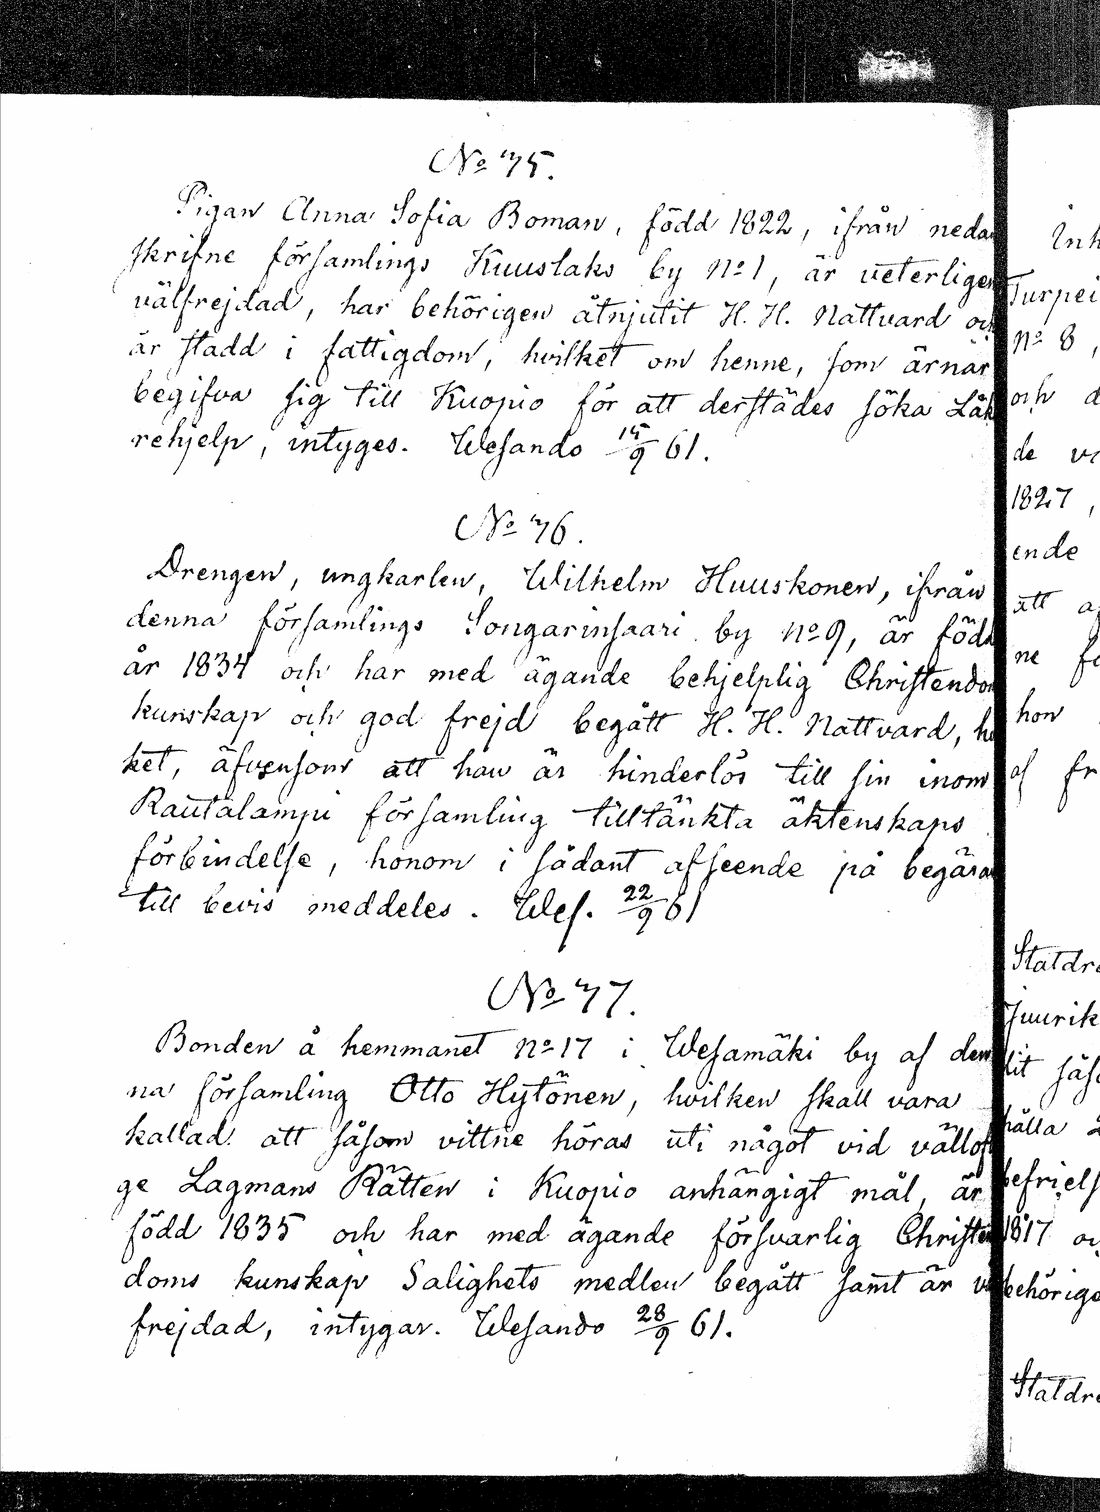 No 75.
Pigan Anna Sofia Boman, född 1822, ifrån neda
skrifne församlings Kuuslaks by No 1, är veterligen
välfrejdad, har behörigen åtnjutit H. H. Nattvard och
är stadd i fattigdom, hvilket om henne, som ärnar
begifva sig till Kuopio för att derstädes söka Läk
rehjelp, intyges. Wesando 15/9 61.
No 76.
Drengen, ungkarlen, Wilhelm Huuskonen, ifrån
denna församlings Songarinsaari by No 9, är född
år 1834 och har med ägande behjelplig Christendom
kunskap och god frejd begått H. H. Nattvard, h
ket, äfvensom att han är hinderlös till sin inom
Rautalampi församling tilltänkta äktenskaps
förbindelse, honom i sådant afseende på begäran
till bevis meddeles. Wes. 22/9 61
No 77.
Bonden å hemmanet No 17 i Wesamäki by af den
na församling Otto Hytönen, hvilken skall vara
kallad att såsom vittne höras uti något vid vällof
ge Lagmans Rätten i Kuopio anhängigt mål, är
född 1835 och har med ägande försvarlig Christen
doms kunskap Salighets medlen begått samt är v
frejdad, intygar. Wesando 28/9 61.
Inh
Turpei
No 8,
och d
de v
1827,
ende
att a
ne f
hon
af fr
Statdr
Juurik
lit såso
hålla L
befriels
1817 oc
behörige
Statdr